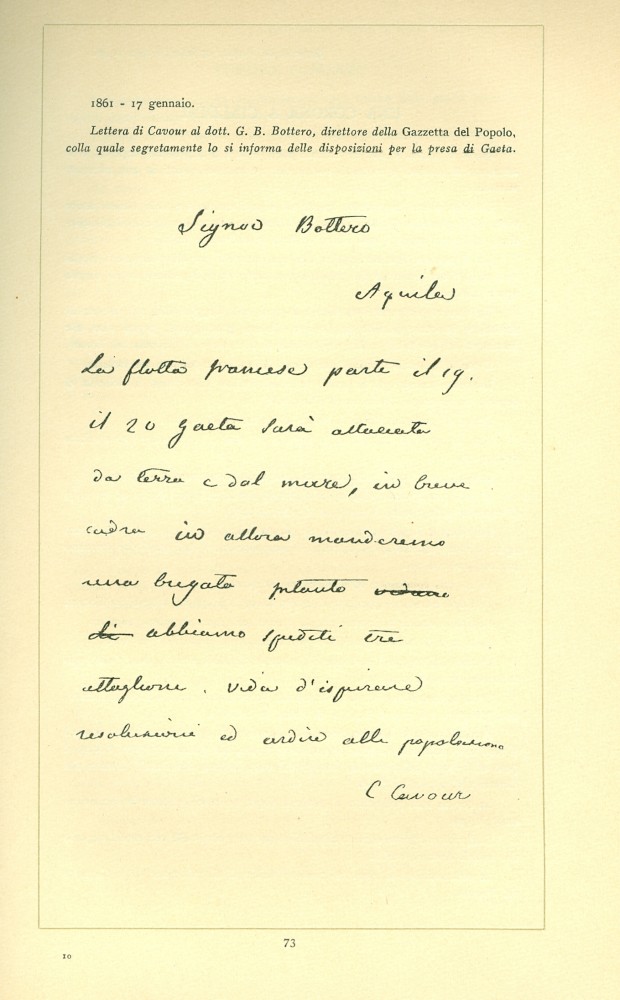 1861 - 17 gennaio.
Lettera di Cavour al dott. G. B. Bottero, direttore della Gazzetta del Popolo,
colla quale segretamente lo si informa delle disposizioni per la presa di Gaeta.
Signor Bottero
Aquila
La flotta francese parte il 19.
il 20 Gaeta sarà attaccata
da terra e dal mare, in breve
cadra in allora manderemo
una brigata intanto
di abbiamo spediti tre
attaglioni. veda d'ispirare
resoluzione ed ardire alle popolazione
C Cavour
73
10